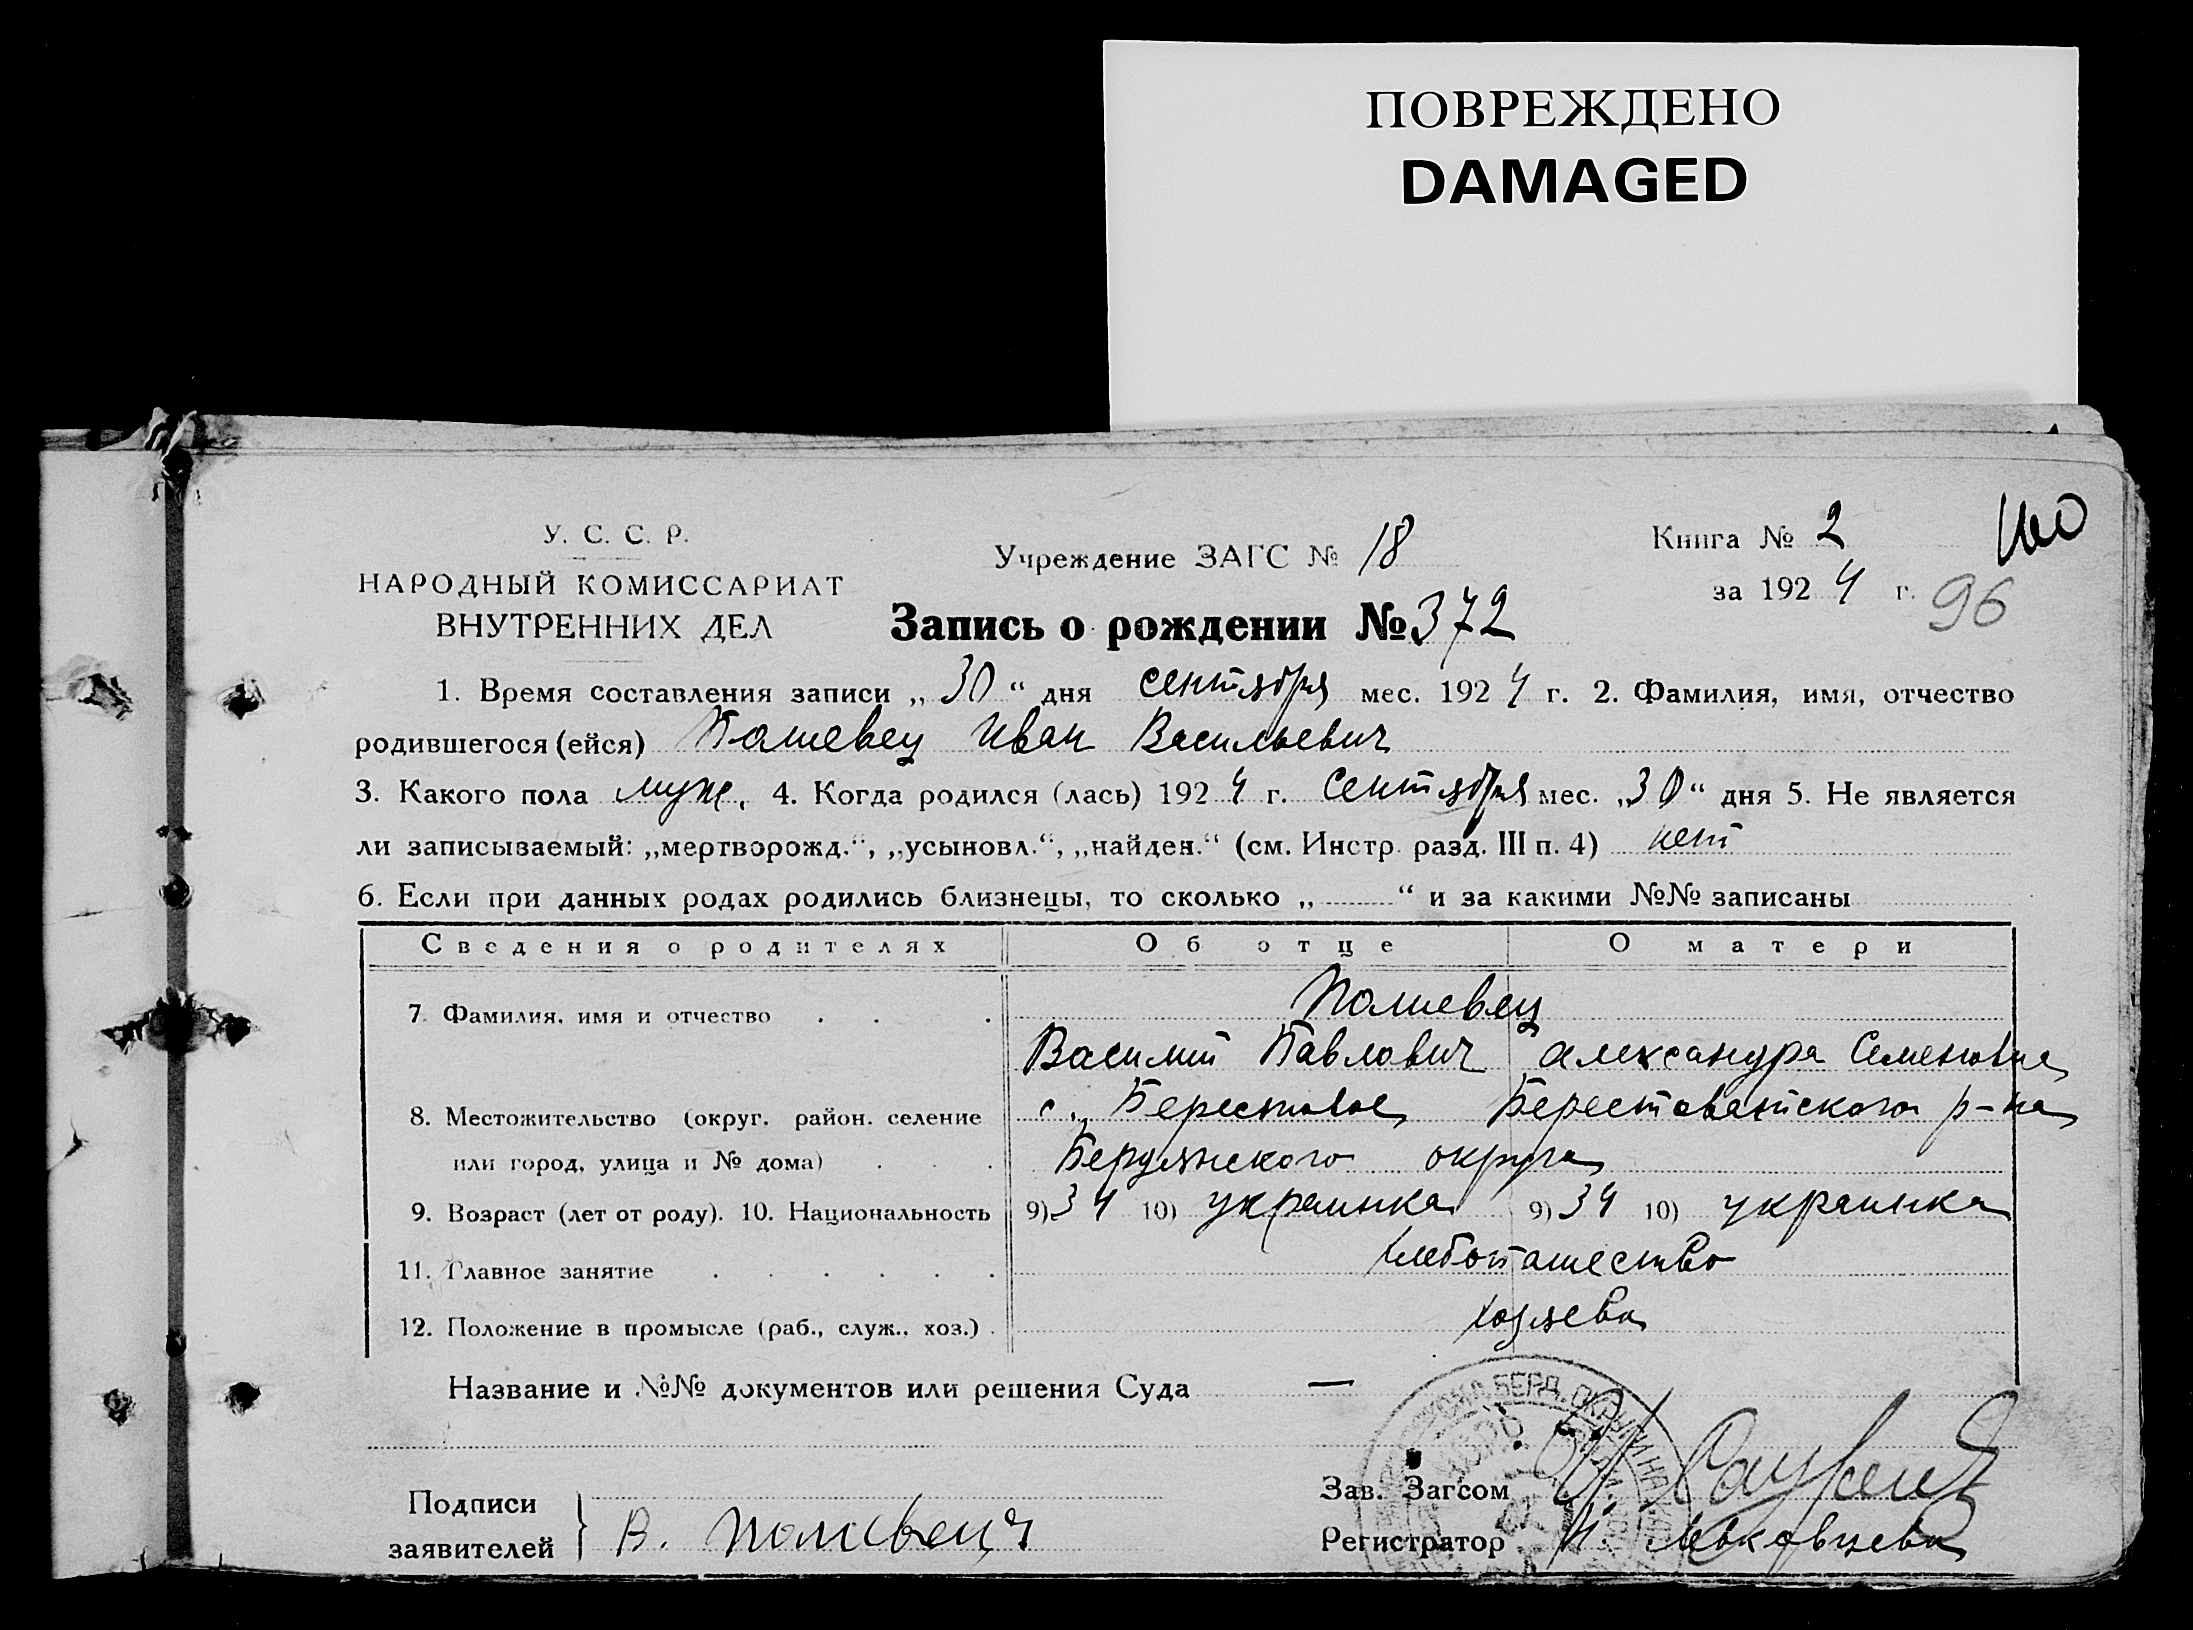 ПОВРЕЖДЕНО
DAMAGED
У. С. С. Р.
НАРОДНЫЙ КОМИССАРИАТ
ВНУТРЕННИХ ДЕЛ
Учреждение ЗАГС № 18
Книга № 2
за 1924 г.
96
Запись о рождении № 372
1. Время составления записи „30“ дня сентября мес. 1924 г. 2. Фамилия, имя, отчество
родившегося (ейся) Полиевец Иван Васильевич
3. Какого пола муж. 4. Когда родился (лась) 1924 г. сентября мес. „30“ дня 5. Не является
ли записываемый: „мертворожд.“, „усыновл.“, „найден.“ (см. Инстр. разд. III п. 4) нет
6. Если при данных родах родились близнецы, то сколько „ “ и за какими №№ записаны
Сведения о родителях Об отце О матери
7. Фамилия, имя и отчество Полиевец
Василий Павлович Александра Семеновна
8. Местожительство (округ, район, селение с. Берестовое, Берестоватского р-на
или город, улица и № дома) Бердянского округа
9. Возраст (лет от роду). 10. Национальность 9) 34 10) украинка 9) 34 10) украинка
11. Главное занятие хлебопашество
12. Положение в промысле (раб., служ., хоз.) хозяева
Название и №№ документов или решения Суда —
Зав. Загсом
Подписи
заявителей В. Полиевец
Регистратор